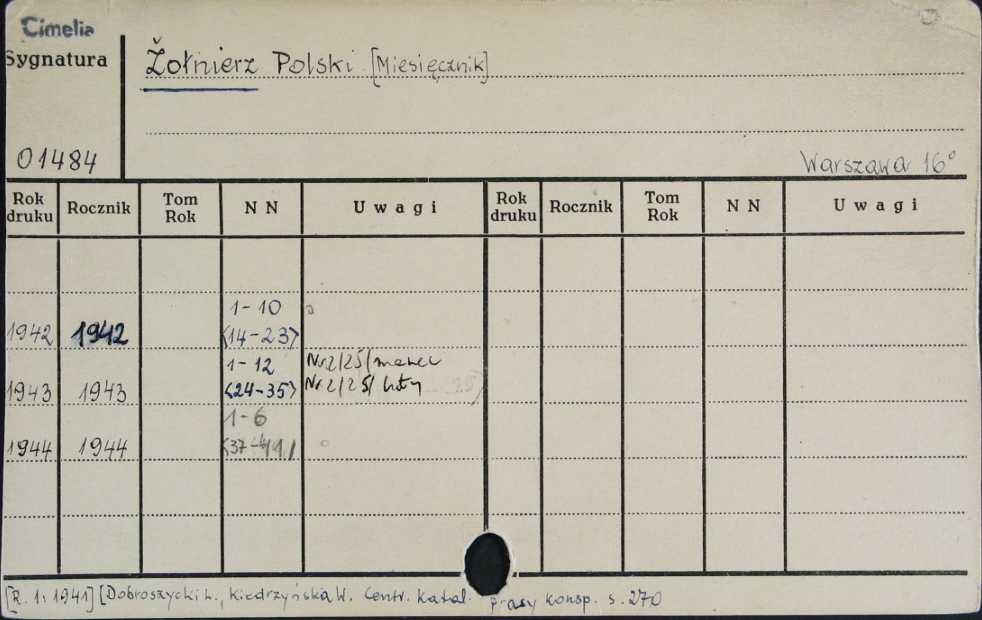 Cimelia
Sygnatura
Żołnierz Polski [Miesięcznik]
01484
Warszawa 16°
Rok druku Rocznik Tom Rok NN Uwagi Rok druku Rocznik Tom Rok NN Uwagi
1-10
1942 1942 <14-23>
1-12 Nr 2/25/marzec
1943 1943 <24-35> Nr 2/25/luty
1-6
1944 1944 <37-41/
[R. 1. 1941] [Dobroszycki L., Kiedrzyńska W. Centr. Katal. prasy konsp. s. 270